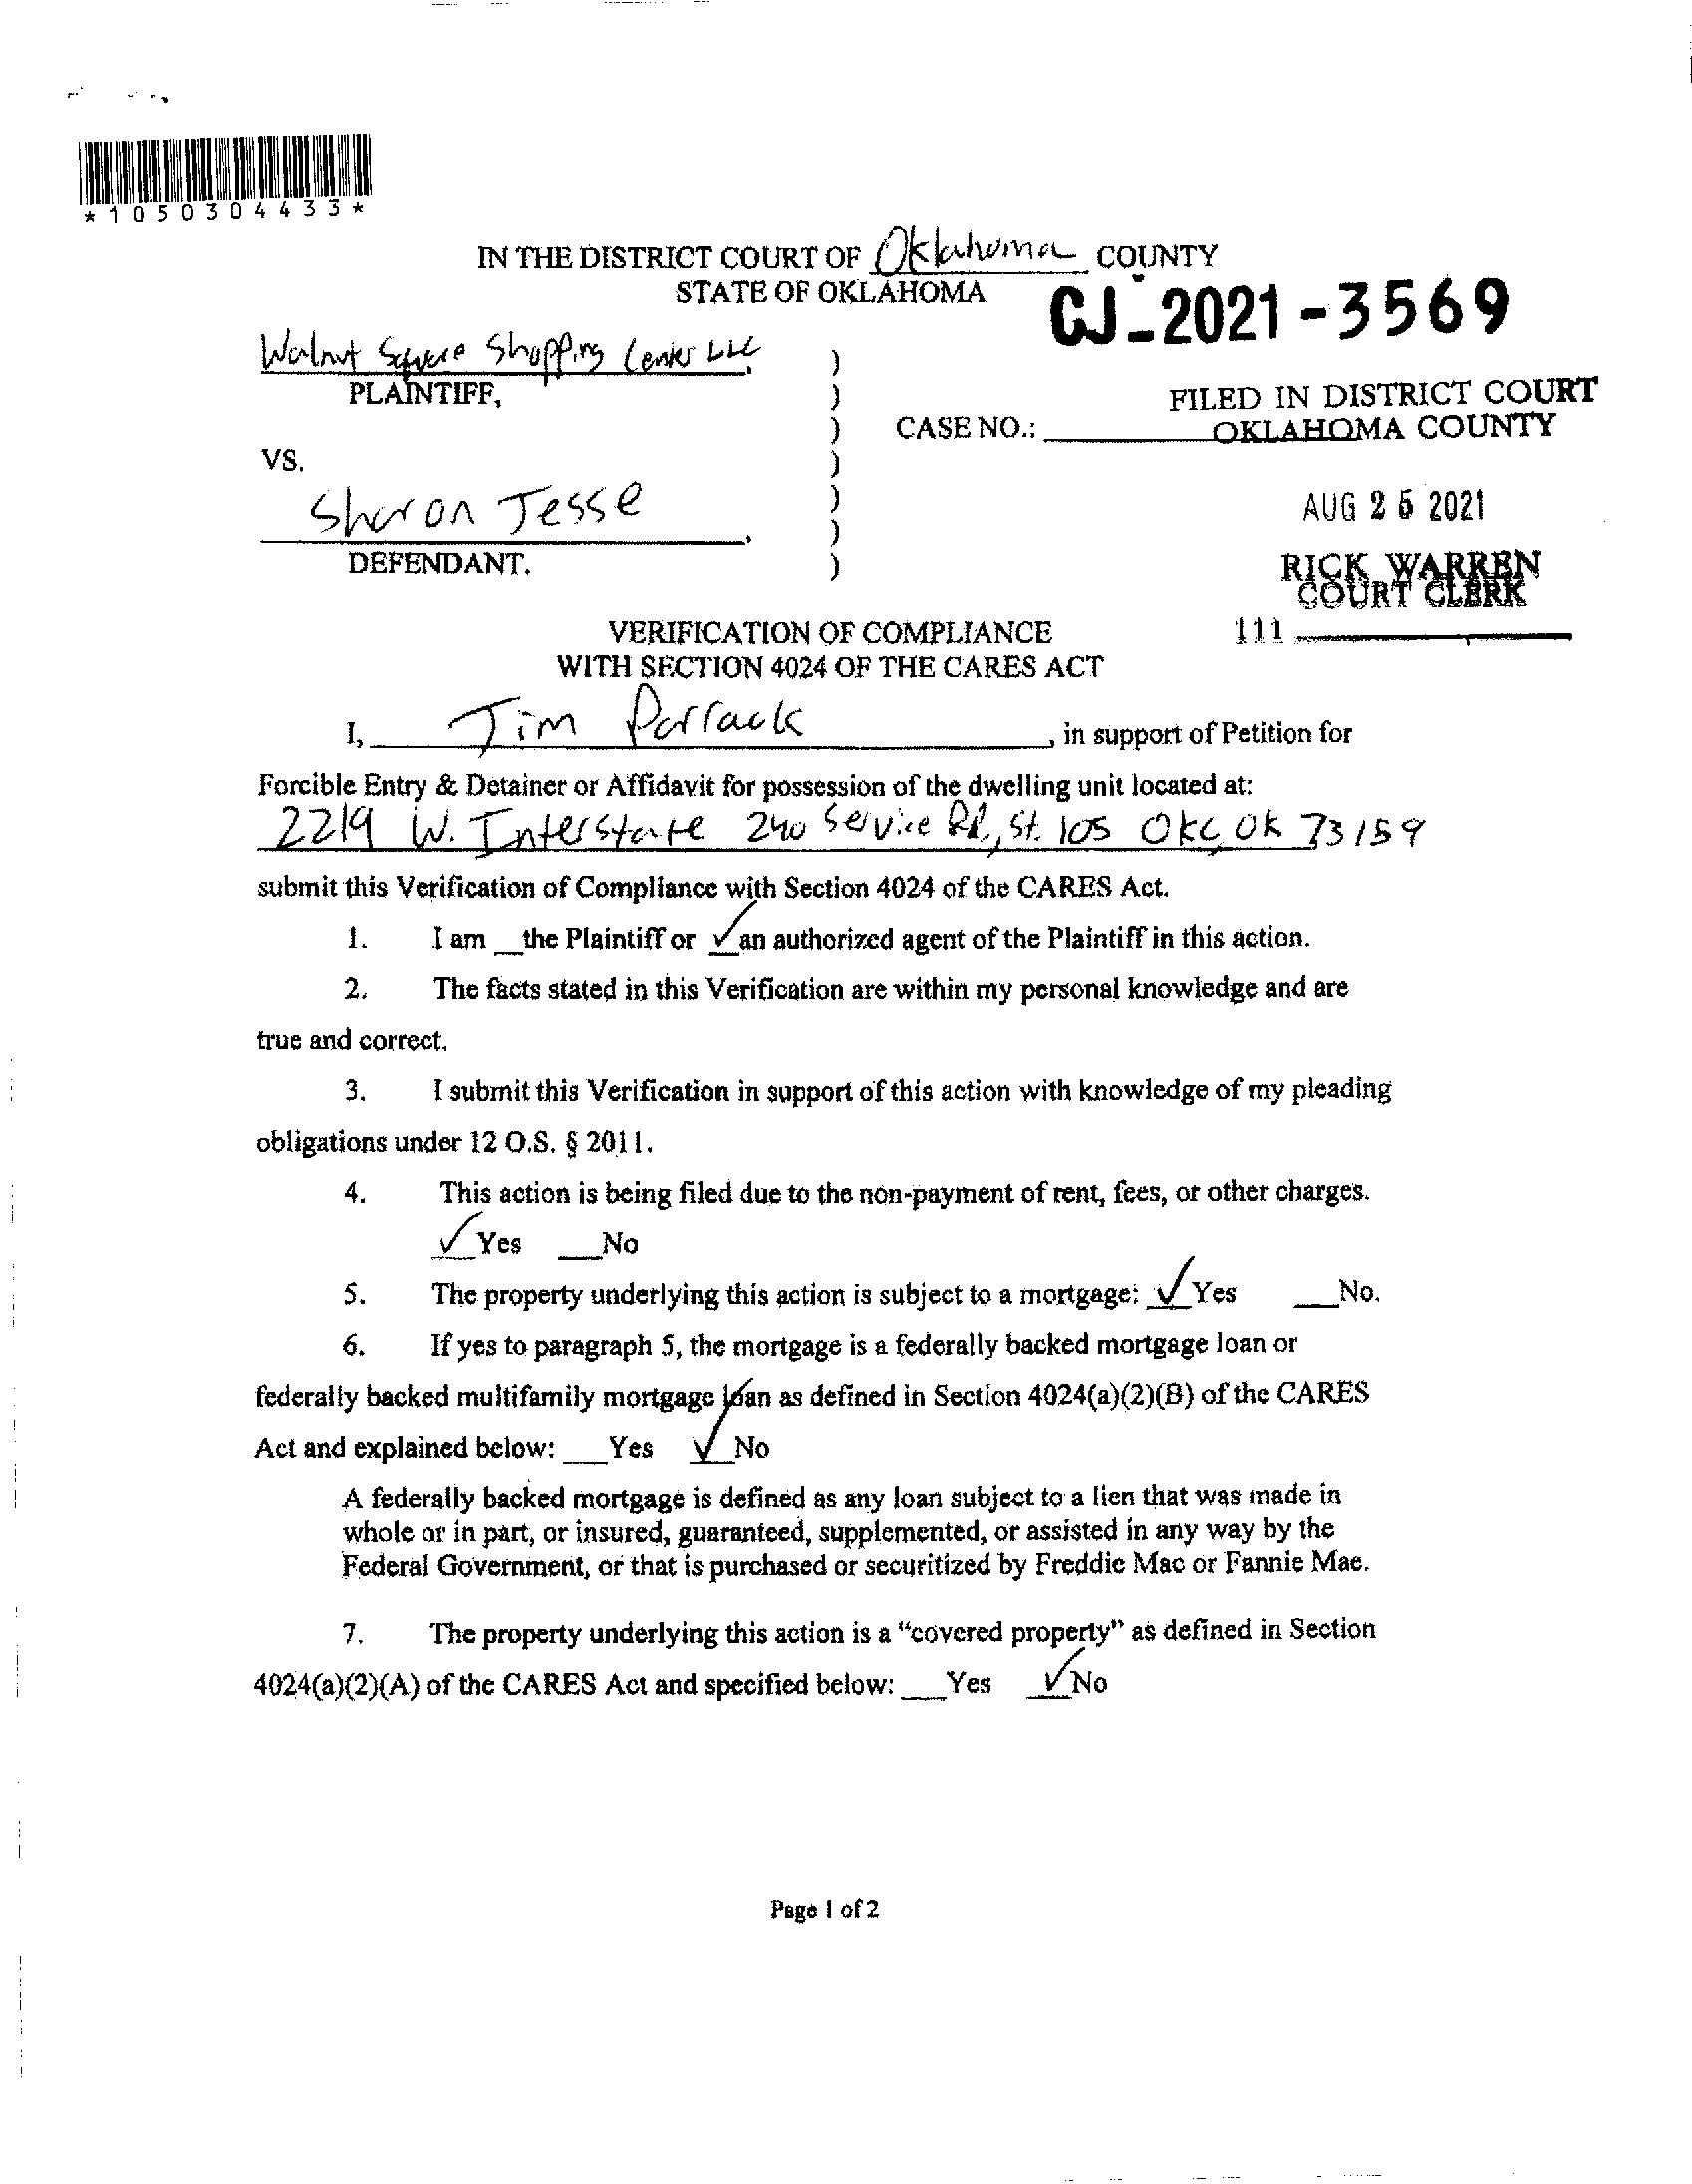 *1050304433*
IN THE DISTRICT COURT OF Oklahoma COUNTY
STATE OF OKLAHOMA
CJ-2021-3569
Walnut Square Shopping Center LLC,
PLAINTIFF,
FILED IN DISTRICT COURT
CASE NO.: OKLAHOMA COUNTY
VS.
Sharon Jesse,
AUG 25 2021
DEFENDANT.
RICK WARREN
COURT CLERK
111
VERIFICATION OF COMPLIANCE
WITH SECTION 4024 OF THE CARES ACT
I, Tim Parrack, in support of Petition for
Forcible Entry & Detainer or Affidavit for possession of the dwelling unit located at:
2219 W. Interstate 240 Service Rd., St. 105 OKC, OK 73159
submit this Verification of Compliance with Section 4024 of the CARES Act.
1. I am __the Plaintiff or ✓an authorized agent of the Plaintiff in this action.
2. The facts stated in this Verification are within my personal knowledge and are
true and correct.
3. I submit this Verification in support of this action with knowledge of my pleading
obligations under 12 O.S. § 2011.
4. This action is being filed due to the non-payment of rent, fees, or other charges.
✓Yes __No
5. The property underlying this action is subject to a mortgage: ✓Yes __No.
6. If yes to paragraph 5, the mortgage is a federally backed mortgage loan or
federally backed multifamily mortgage loan as defined in Section 4024(a)(2)(B) of the CARES
Act and explained below: __Yes ✓No
A federally backed mortgage is defined as any loan subject to a lien that was made in
whole or in part, or insured, guaranteed, supplemented, or assisted in any way by the
Federal Government, or that is purchased or securitized by Freddie Mac or Fannie Mae.
7. The property underlying this action is a "covered property" as defined in Section
4024(a)(2)(A) of the CARES Act and specified below: __Yes ✓No
Page 1 of 2